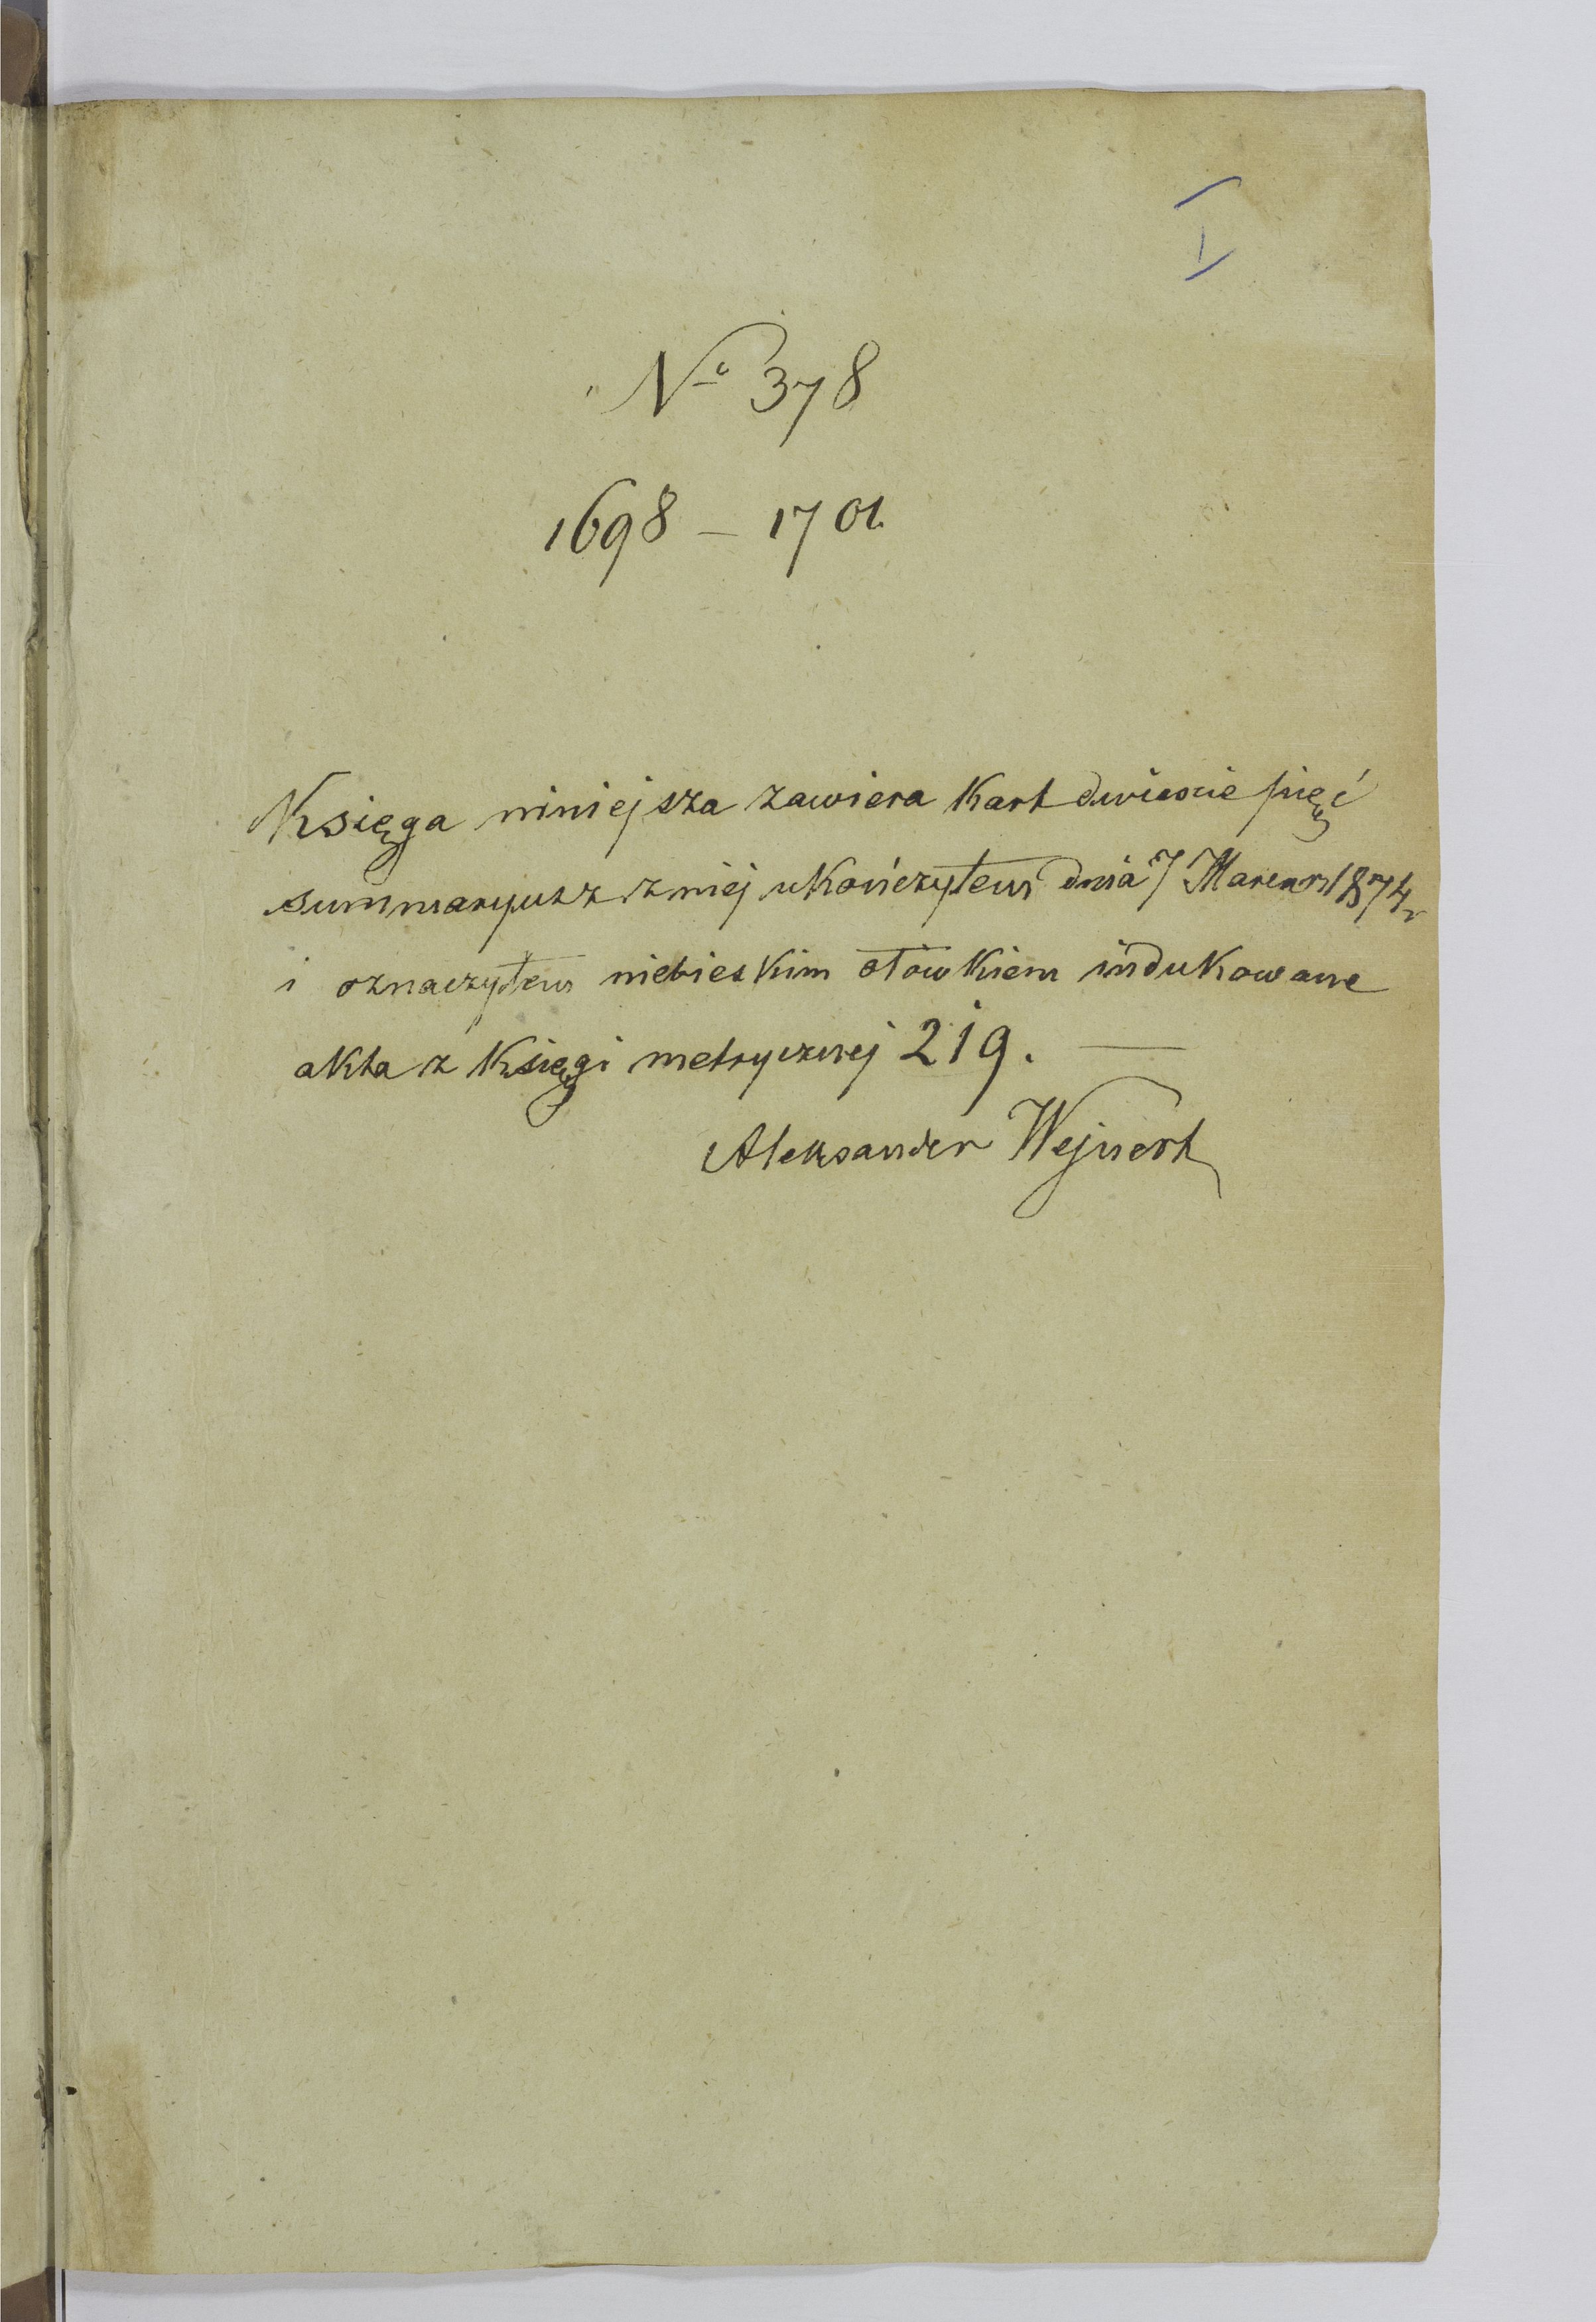 I
No 378
1698 – 1701.
Księga niniejsza zawiera kart dwieście pięć
summaryusz z niej ukończyłem dnia 7 Marca 1874 r
i oznaczyłem niebieskim ołówkiem indukowane
akta z Księgi metrycznej 219. —
Aleksander Wejnert